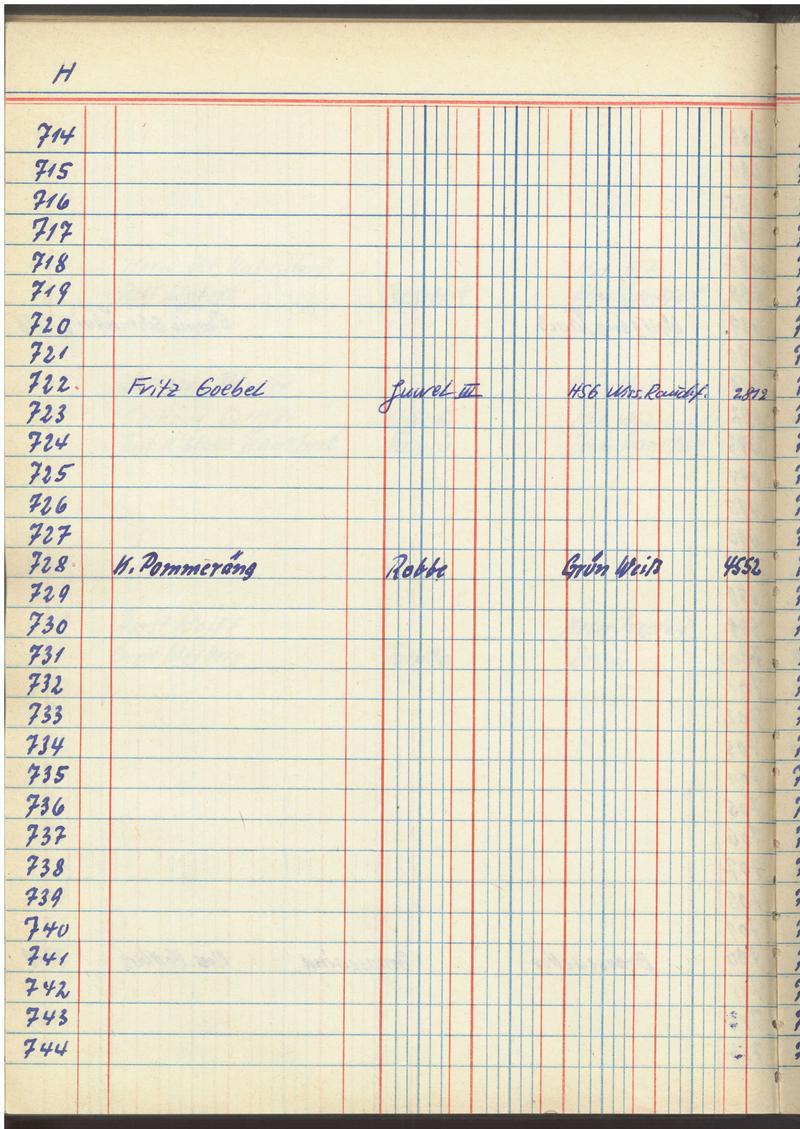 H
714
715
716
717
718
719
720
721
722. Fritz Goebel Juwel III HSG Wiss. 2812
723
724
725
726
727
728. K. Pommeräng Robbe Grün Weiß 4552
729
730
731
732
733
734
735
736
737
738
739
740
741
742
743
744